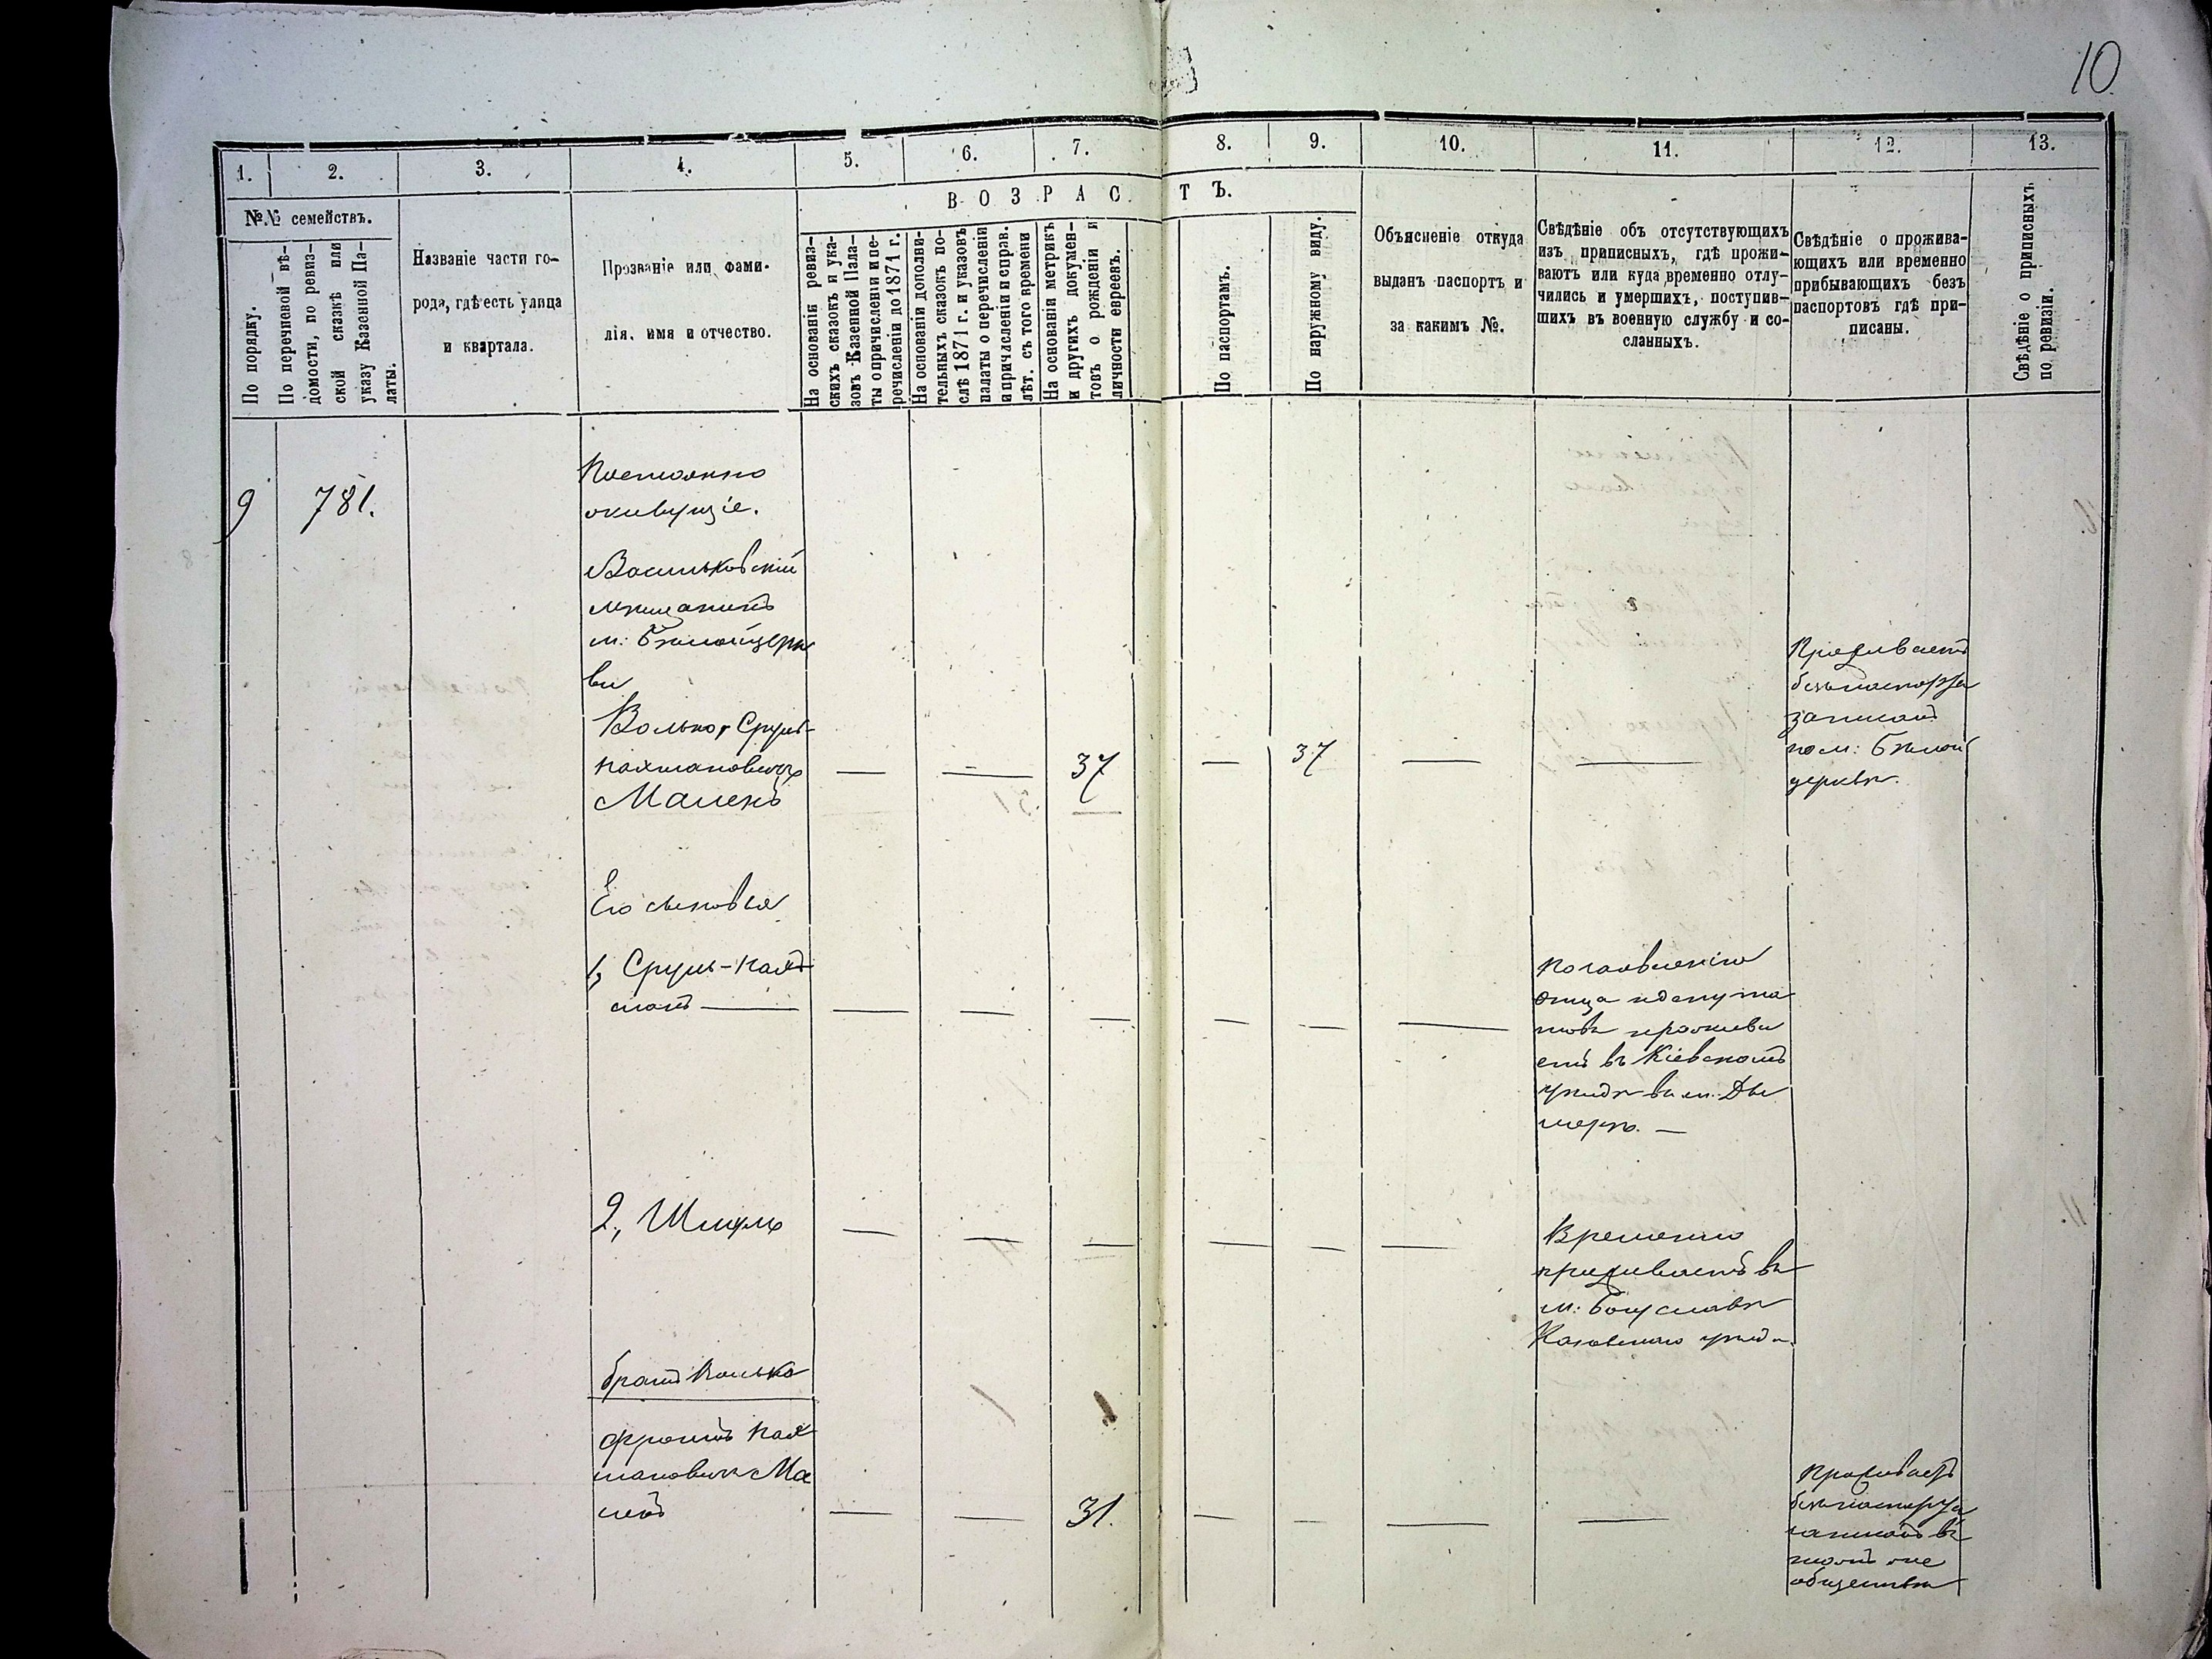 10
1.
2.
3.
4.
5.
6.
7.
8.
9.
10.
11.
12.
13.
№№ семействъ.
В О З Р А С Т Ъ.
По порядку.
По перечневой вѣ-
домости, по ревиз-
ской сказкѣ или
указу Казенной Па-
латы.
Названіе части го-
рода, гдѣ есть улица
и квартала.
Прозваніе или фами-
лія, имя и отчество.
На основаніи ревиз-
скихъ сказокъ и ука-
зовъ Казенной Пала-
ты о причисленіи и пе-
речисленіи до 1871 г.
На основаніи дополни-
тельныхъ сказокъ по-
слѣ 1871 г. и указовъ
палаты о перечисленіи
и причисленіи и справ.
лѣт. съ того времени
На основаніи метрикъ
и другихъ докумен-
товъ о рожденіи и
личности евреевъ.
По паспортамъ.
По наружному виду.
Объясненіе откуда
выданъ паспортъ и
за какимъ №.
Свѣдѣніе объ отсутствующихъ
изъ приписныхъ, гдѣ прожи-
ваютъ или куда временно отлу-
чились и умершихъ, поступив-
шихъ въ военную службу и со-
сланныхъ.
Свѣдѣніе о прожива-
ющихъ или временно
прибывающихъ безъ
паспортовъ гдѣ при-
писаны.
Свѣдѣніе о приписныхъ
по ревизіи.
9
781.
Постоянно
живущіе.
Васильковскій
мѣщанинъ
м: Бѣлойцерк
ви
Волько Сруль-
Нахмановичъ
Маленъ
—
—
37
—
37
—
—
Проживаетъ
безъ паспорта
записанъ
по м: Бѣлой
церкви.
Его сыновья
1, Сруль-Нах
манъ —
—
—
—
—
—
—
По заявленію
отца и депута
товъ прожива
етъ въ Кіевскомъ
уѣздѣ въ м. Ды
мерѣ. —
2, Шмуль
—
—
—
—
—
—
Временно
проживаетъ въ
м: Богуславѣ
Каневскаго уѣзда.
братъ Волька
Фроимъ Нах
мановичъ Ма
ленъ
—
—
31.
—
—
—
—
Проживаетъ
безъ паспорта
записанъ въ
томъ же
обществѣ